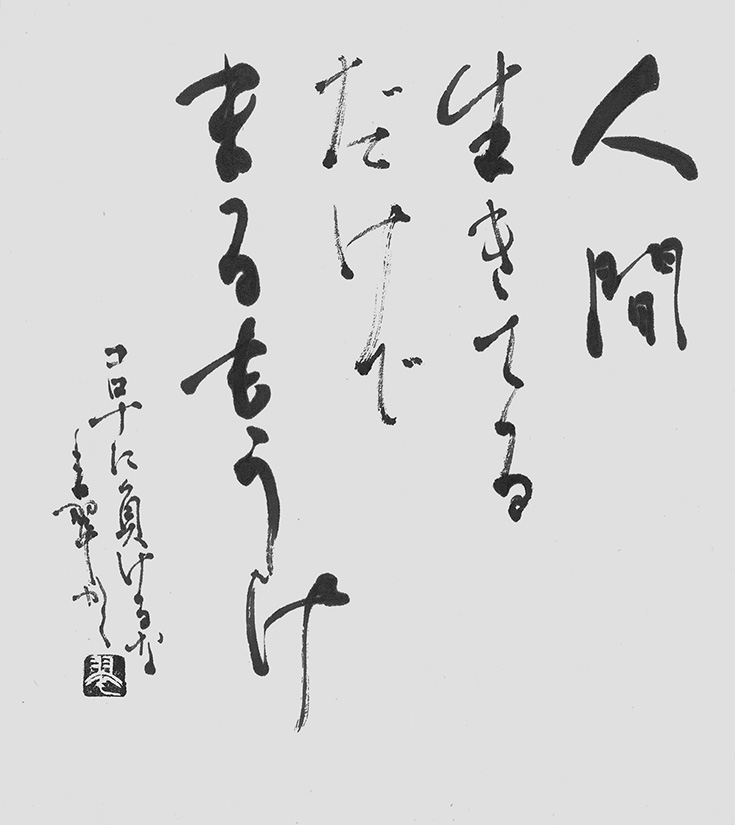 人間
生きてる
だけで
まるもうけ
コロナに負けるな